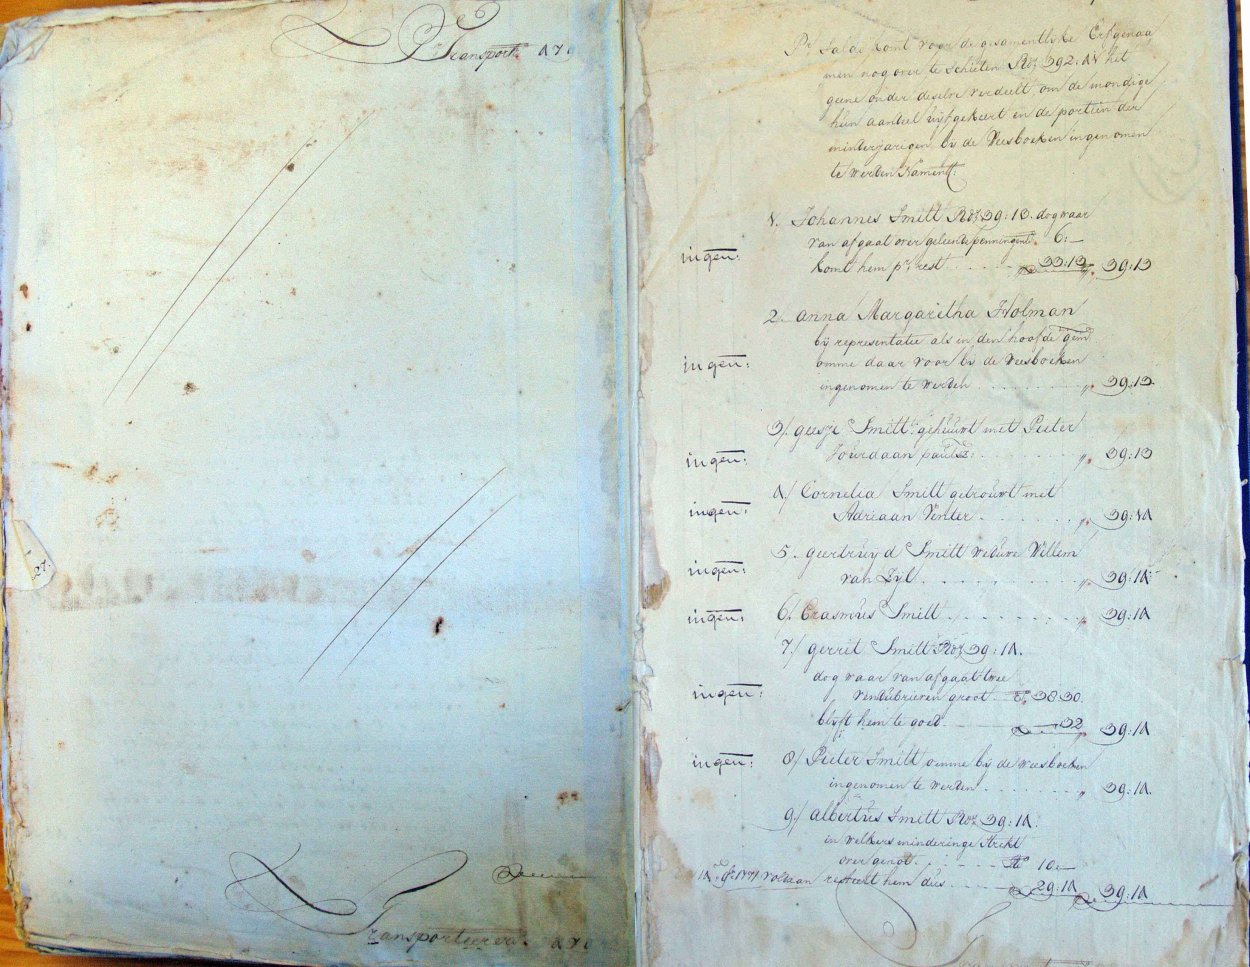 Pr Transport
Transporteere
Pr Saldo komt voor de gesamentlijke Erfgenaa
men nog over te schieten Rds 392: 11 het
geene onder deselve verdeelt om de mondige
hun aandeel uijtgekeert en de portien der
minderjarigen bij de Weesboeken ingenomen
te werden Namentl:
1. Johannes Smitt Rds 39: 13. dog waar
van afgaat over geleende penningen 6: –
ingen: komt hem pr rest 33:13 „ 39:13
2. Anna Margaretha Holman
bij representatie als in den hoofde gem
ingen: omme daar voor bij de Weesboeken
ingenomen te werden „ 39:13.
3/ Geesje Smitt getrouwt met Pieter
ingen: Jourdaan paulsz: „ 39:13
4/ Cornelia Smitt getrouwt met
ingen: Adriaan Venter „ 39:14
5. Geertruyd Smitt weduwe Willem
ingen: van Zijl „ 39:14
ingen: 6/ Erasmus Smitt „ 39:14
7/ Gerrit Smitt Rds 39: 14.
dog waar van afgaat twee
ingen: vendubrieven groot 38 30.
blijft hem te goed 32 „ 39:14
ingen: 8/ Pieter Smitt omme bij de weesboeken
ingenomen te werden „ 39:14.
9/ Albertus Smitt Rds 39: 14.
in welkers mindering strekt
over genot 10 –
voldaan resteert hem dus 29:14 39:14